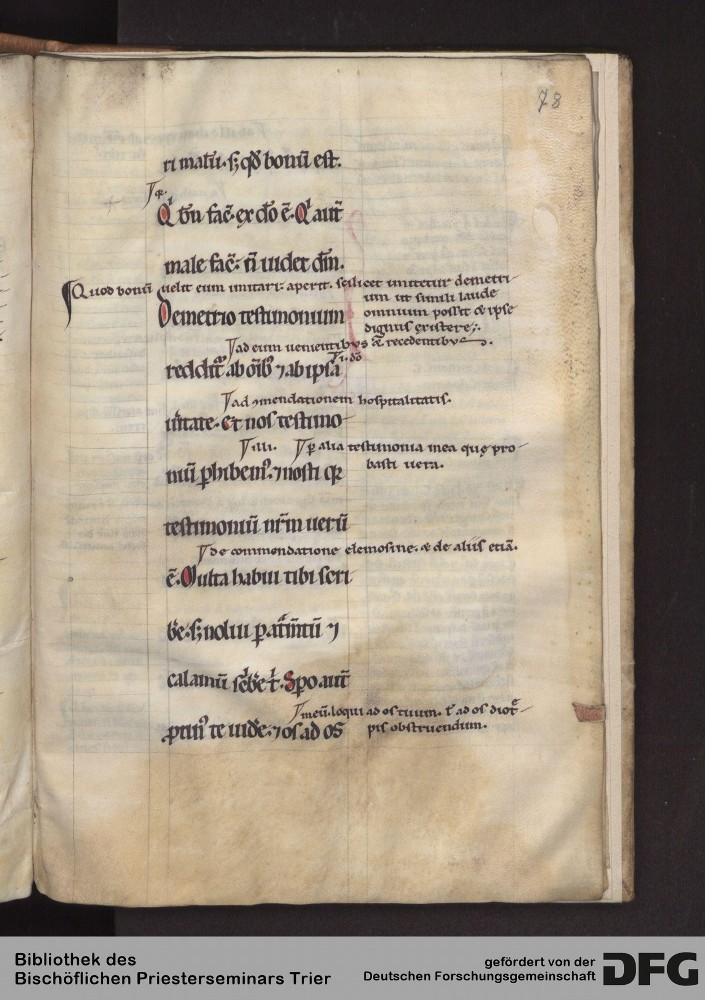 78
ri malū. s; qđ bonū est.
Qi bñ facͭ. ex dō ē. Qi autͫ
male facͭ. ñ uidet dm̄.
Quod bonū uelit eum imitari. aperit. scilicet imitetur demetri-
um ut simili laude
Demetrio testimonium
omnium possit & ipse
dignus existere.
ad eum uenientibus & recedentibus.
.i. dō
redditͬ ab oīb; ⁊ ab ipsa
ad ɔmendationem hospitalitatis.
ūitate. et nos testimo-
illi. ꝑ alia testimonia mea quę pro-
basti uera.
niū ꝑhibemꝰ. ⁊ nosti qꝛ
testimoniū nrm̄ uerū
de commendatione elemosine. & de aliis etiā.
ē. Multa habui tibi scri
b̄e. s; nolui ꝑ atm̄tū ⁊
calamū scb̄e t. Spo. autͫ
meū. loqui ad os tuum. ł ad os diot-
ꝓtinꝰ te uide. ⁊ os ad os
pis obstruendum.
Bibliothek des
Bischöflichen Priesterseminars Trier
gefördert von der
Deutschen Forschungsgemeinschaft
DFG